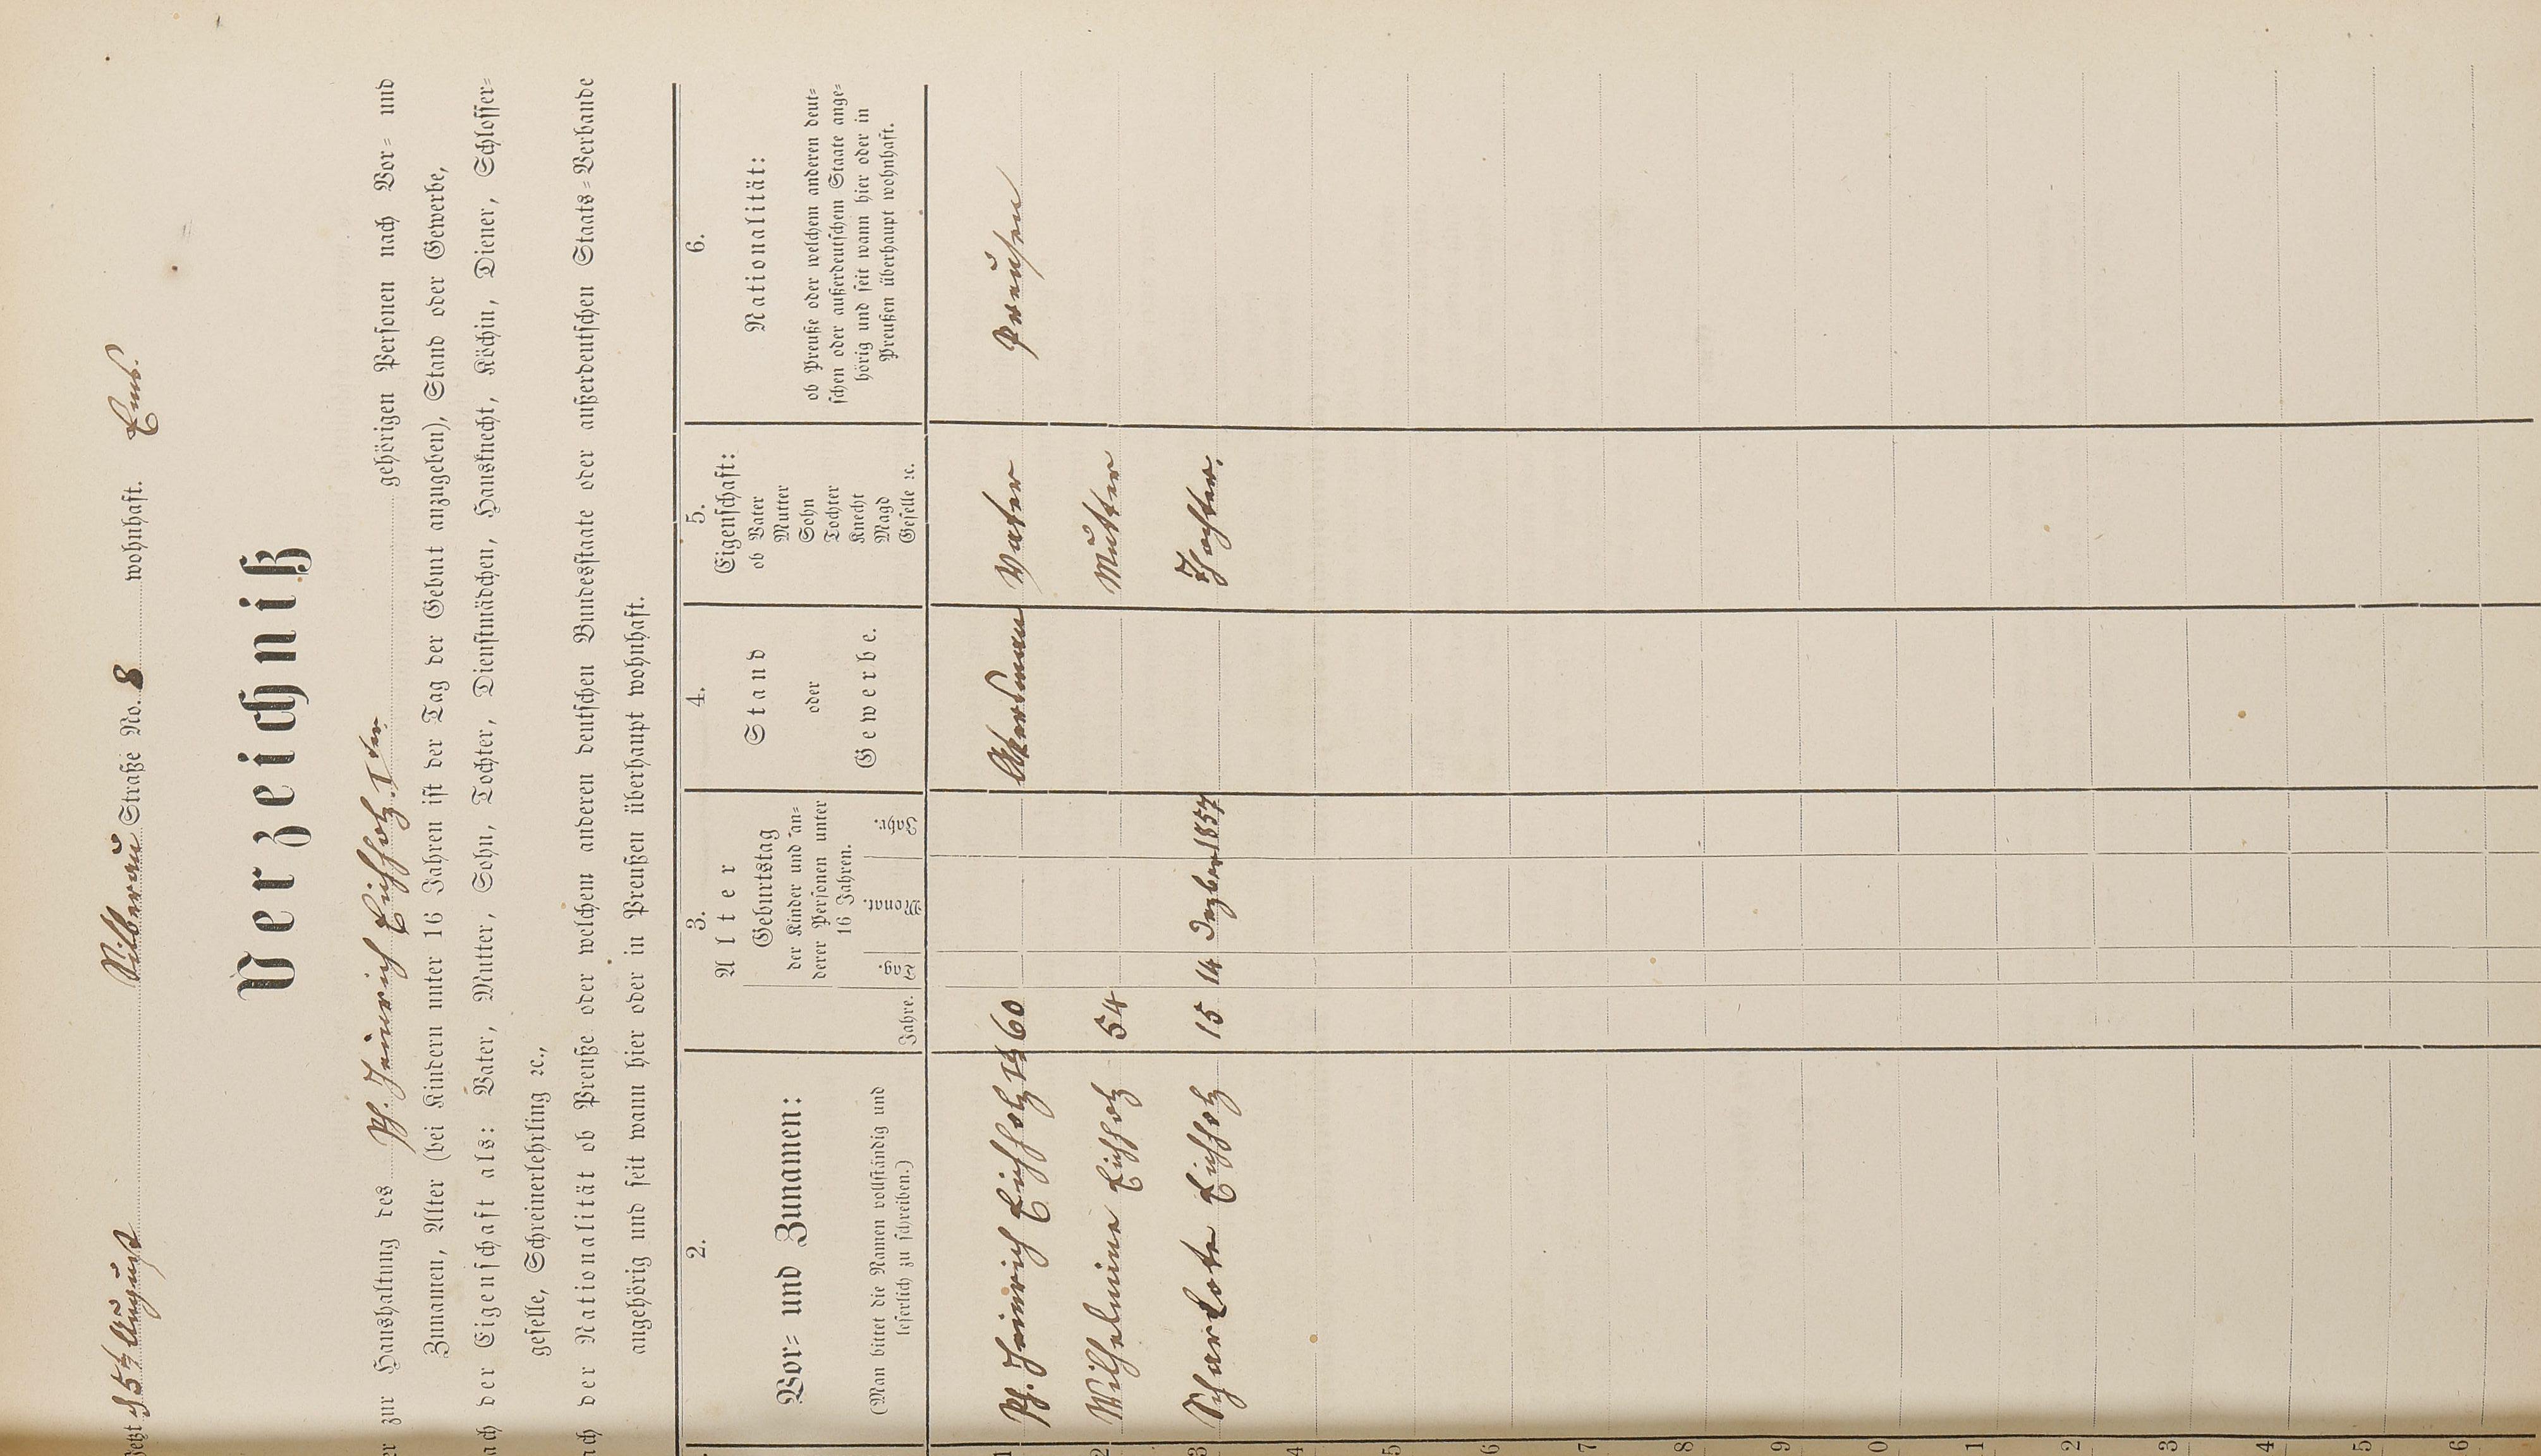 Jetzt d 15ten August Silberau Straße No. 8 wohnhaft. Ems.
Verzeichniß
er zur Haushaltung des Ph. Heinrich Eichholz Iter gehörigen Personen nach Vor= und
Zunamen, Alter (bei Kindern unter 16 Jahren ist der Tag der Geburt anzugeben), Stand oder Gewerbe,
ach der Eigenschaft als: Vater, Mutter, Sohn, Tochter, Dienstmädchen, Hausknecht, Köchin, Diener, Schlosser=
geselle, Schreinerlehrling ꝛc.,
ach der Nationalität ob Preuße oder welchem anderen deutschen Bundesstaate oder außerdeutschen Staats=Verbande
angehörig und seit wann hier oder in Preußen überhaupt wohnhaft.
2. 3. 4. 5. 6.
Vor= und Zunamen:
(Man bittet die Namen vollständig und
leserlich zu schreiben.)
Alter
Geburtstag
der Kinder und an=
derer Personen unter
16 Jahren.
Jahre. Tag. Monat. Jahr.
Stand
oder
Gewerbe.
Eigenschaft:
ob Vater
Mutter
Sohn
Tochter
Knecht
Magd
Geselle ꝛc.
Nationalität:
ob Preuße oder welchem anderen deut=
schen oder außerdeutschem Staate ange=
hörig und seit wann hier oder in
Preußen überhaupt wohnhaft.
1 Ph. Heinrich Eichholz 60 Akersman Vater Preußen
2 Wilhelmine Eichholz 54 Mutter
3 Scharlote Eichholz 15 14 Dezber 1857 Tochter.
4
5
6
7
8
9
0
1
2
3
4
5
6